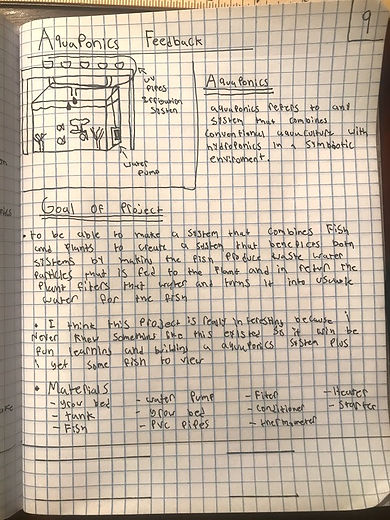 9
Aquaponics Feedback
UV
PIPES
Irribution
System
water
Pump
Aquaponics
aquaponics refers to and
system that combines
conventional aquaculture with
hydroponics in a symbiotic
enviroment.
Goal of Project
• to be able to make a system that combines Fish
and plants to create a system that beneficies both
systems by making the fish produce waste water
Particles that is fed to the plant and in return the
plant filters that water and turns it into useable
water for the fish
• I think this project is really interesting because i
never knew something like this existed so it will be
fun learning and building a aquaponics system plus
i get some fish to view
• Materials
- grow bed
- tank
- Fish
- water pump
- grow bed
- PVC pipes
- Filter
- conditioner
- thermometer
- Heater
- Starter